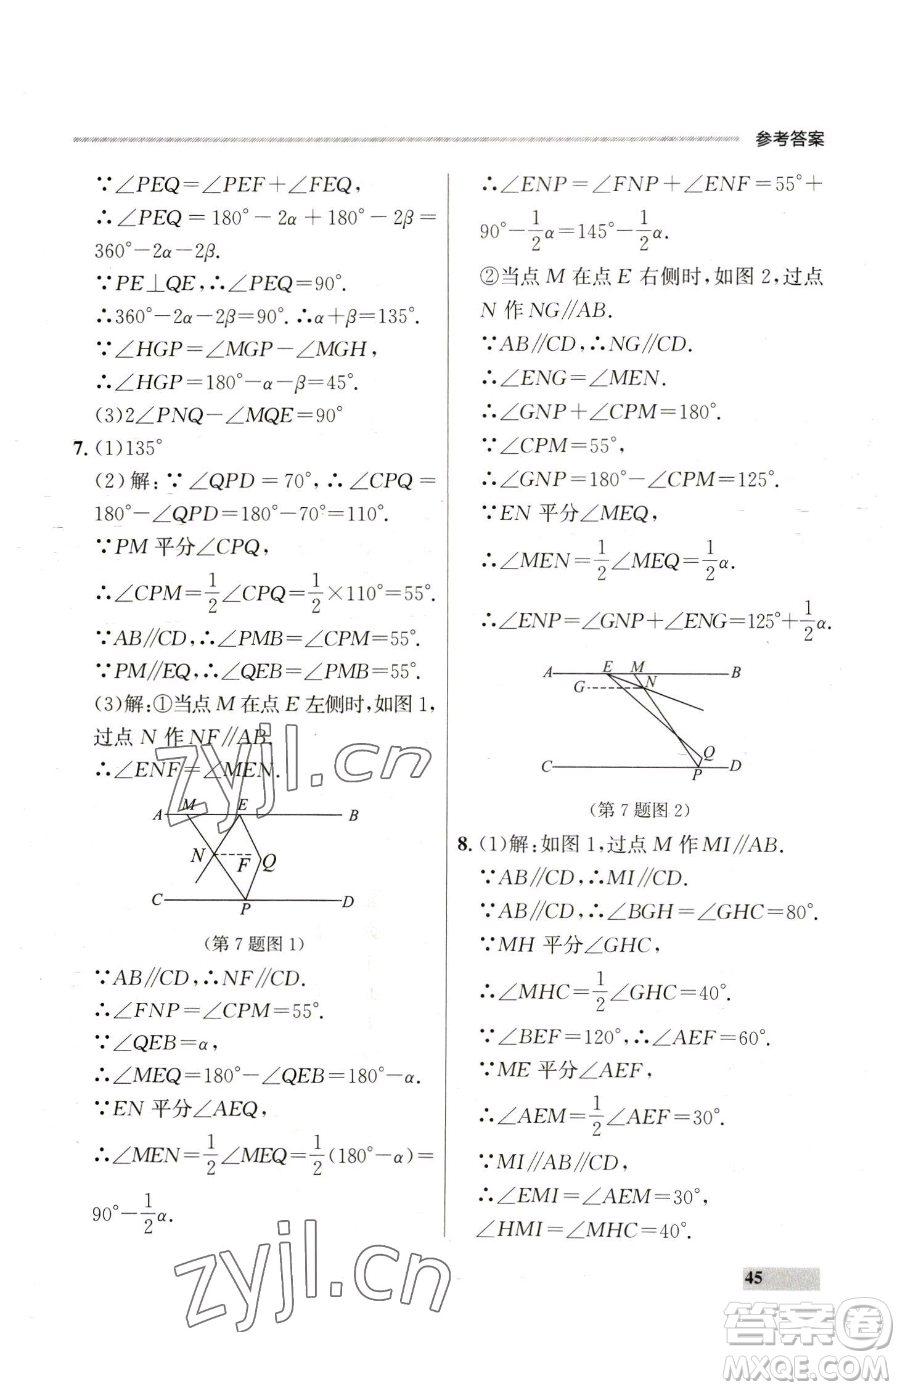 参考答案
∵∠PEQ=∠PEF+∠FEQ,
∴∠PEQ=180°-2α+180°-2β=
360°-2α-2β.
∵PE⊥QE,∴∠PEQ=90°.
∴360°-2α-2β=90°.∴α+β=135°.
∵∠HGP=∠MGP-∠MGH,
∴∠HGP=180°-α-β=45°.
(3)2∠PNQ-∠MQE=90°
7. (1)135°
(2)解:∵∠QPD=70°,∴∠CPQ=
180°-∠QPD=180°-70°=110°.
∵PM平分∠CPQ,
∴∠CPM=1/2∠CPQ=1/2×110°=55°.
∵AB∥CD,∴∠PMB=∠CPM=55°.
∵PM∥EQ,∴∠QEB=∠PMB=55°.
(3)解:①当点M在点E左侧时,如图1,
过点N作NF∥AB.
∴∠ENF=∠MEN.
A M E B
N F Q
C P D
(第7题图1)
∵AB∥CD,∴NF∥CD.
∴∠FNP=∠CPM=55°.
∵∠QEB=α,
∴∠MEQ=180°-∠QEB=180°-α.
∵EN平分∠AEQ,
∴∠MEN=1/2∠MEQ=1/2(180°-α)=
90°-1/2α.
∴∠ENP=∠FNP+∠ENF=55°+
90°-1/2α=145°-1/2α.
②当点M在点E右侧时,如图2,过点
N作NG∥AB.
∵AB∥CD,∴NG∥CD.
∴∠ENG=∠MEN.
∴∠GNP+∠CPM=180°.
∵∠CPM=55°,
∴∠GNP=180°-∠CPM=125°.
∵EN平分∠MEQ,
∴∠MEN=1/2∠MEQ=1/2α.
∴∠ENP=∠GNP+∠ENG=125°+1/2α.
A E M B
G N
Q
C P D
(第7题图2)
8. (1)解:如图1,过点M作MI∥AB.
∵AB∥CD,∴MI∥CD.
∵AB∥CD,∴∠BGH=∠GHC=80°.
∵MH平分∠GHC,
∴∠MHC=1/2∠GHC=40°.
∵∠BEF=120°,∴∠AEF=60°.
∵ME平分∠AEF,
∴∠AEM=1/2∠AEF=30°.
∵MI∥AB∥CD,
∴∠EMI=∠AEM=30°,
∠HMI=∠MHC=40°.
45
zyjl.cn
zyjl.cn
答案圈
MXQE.COM